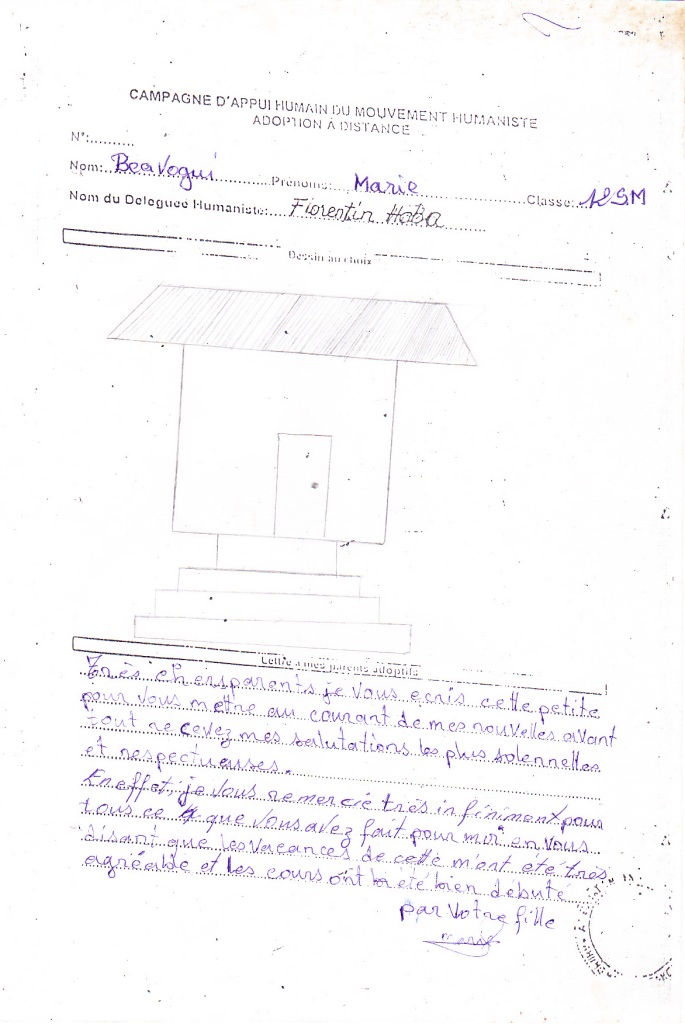 CAMPAGNE D'APPUI HUMAIN DU MOUVEMENT HUMANISTE
ADOPTION À DISTANCE
N°:..........
Nom: Beavogui Prénoms: Marie Classe: 12 SM
Nom du Deleguée Humaniste: Florentin Haba
Dessin au choix
Lettre a mes parents adoptifs
Très chersparents je vous ecris cette petite
pour vous mettre au courant de mes nouvelles avant
tout recevez mes salutations les plus solennelles
et respectueuses.
En effet, je vous remercie très infiniment pour
tous ce que vous avez fait pour moi en vous
disant que les vacances de cette m'ont été très
agréable et les cours ont été bien debuté
par votre fille
Marie